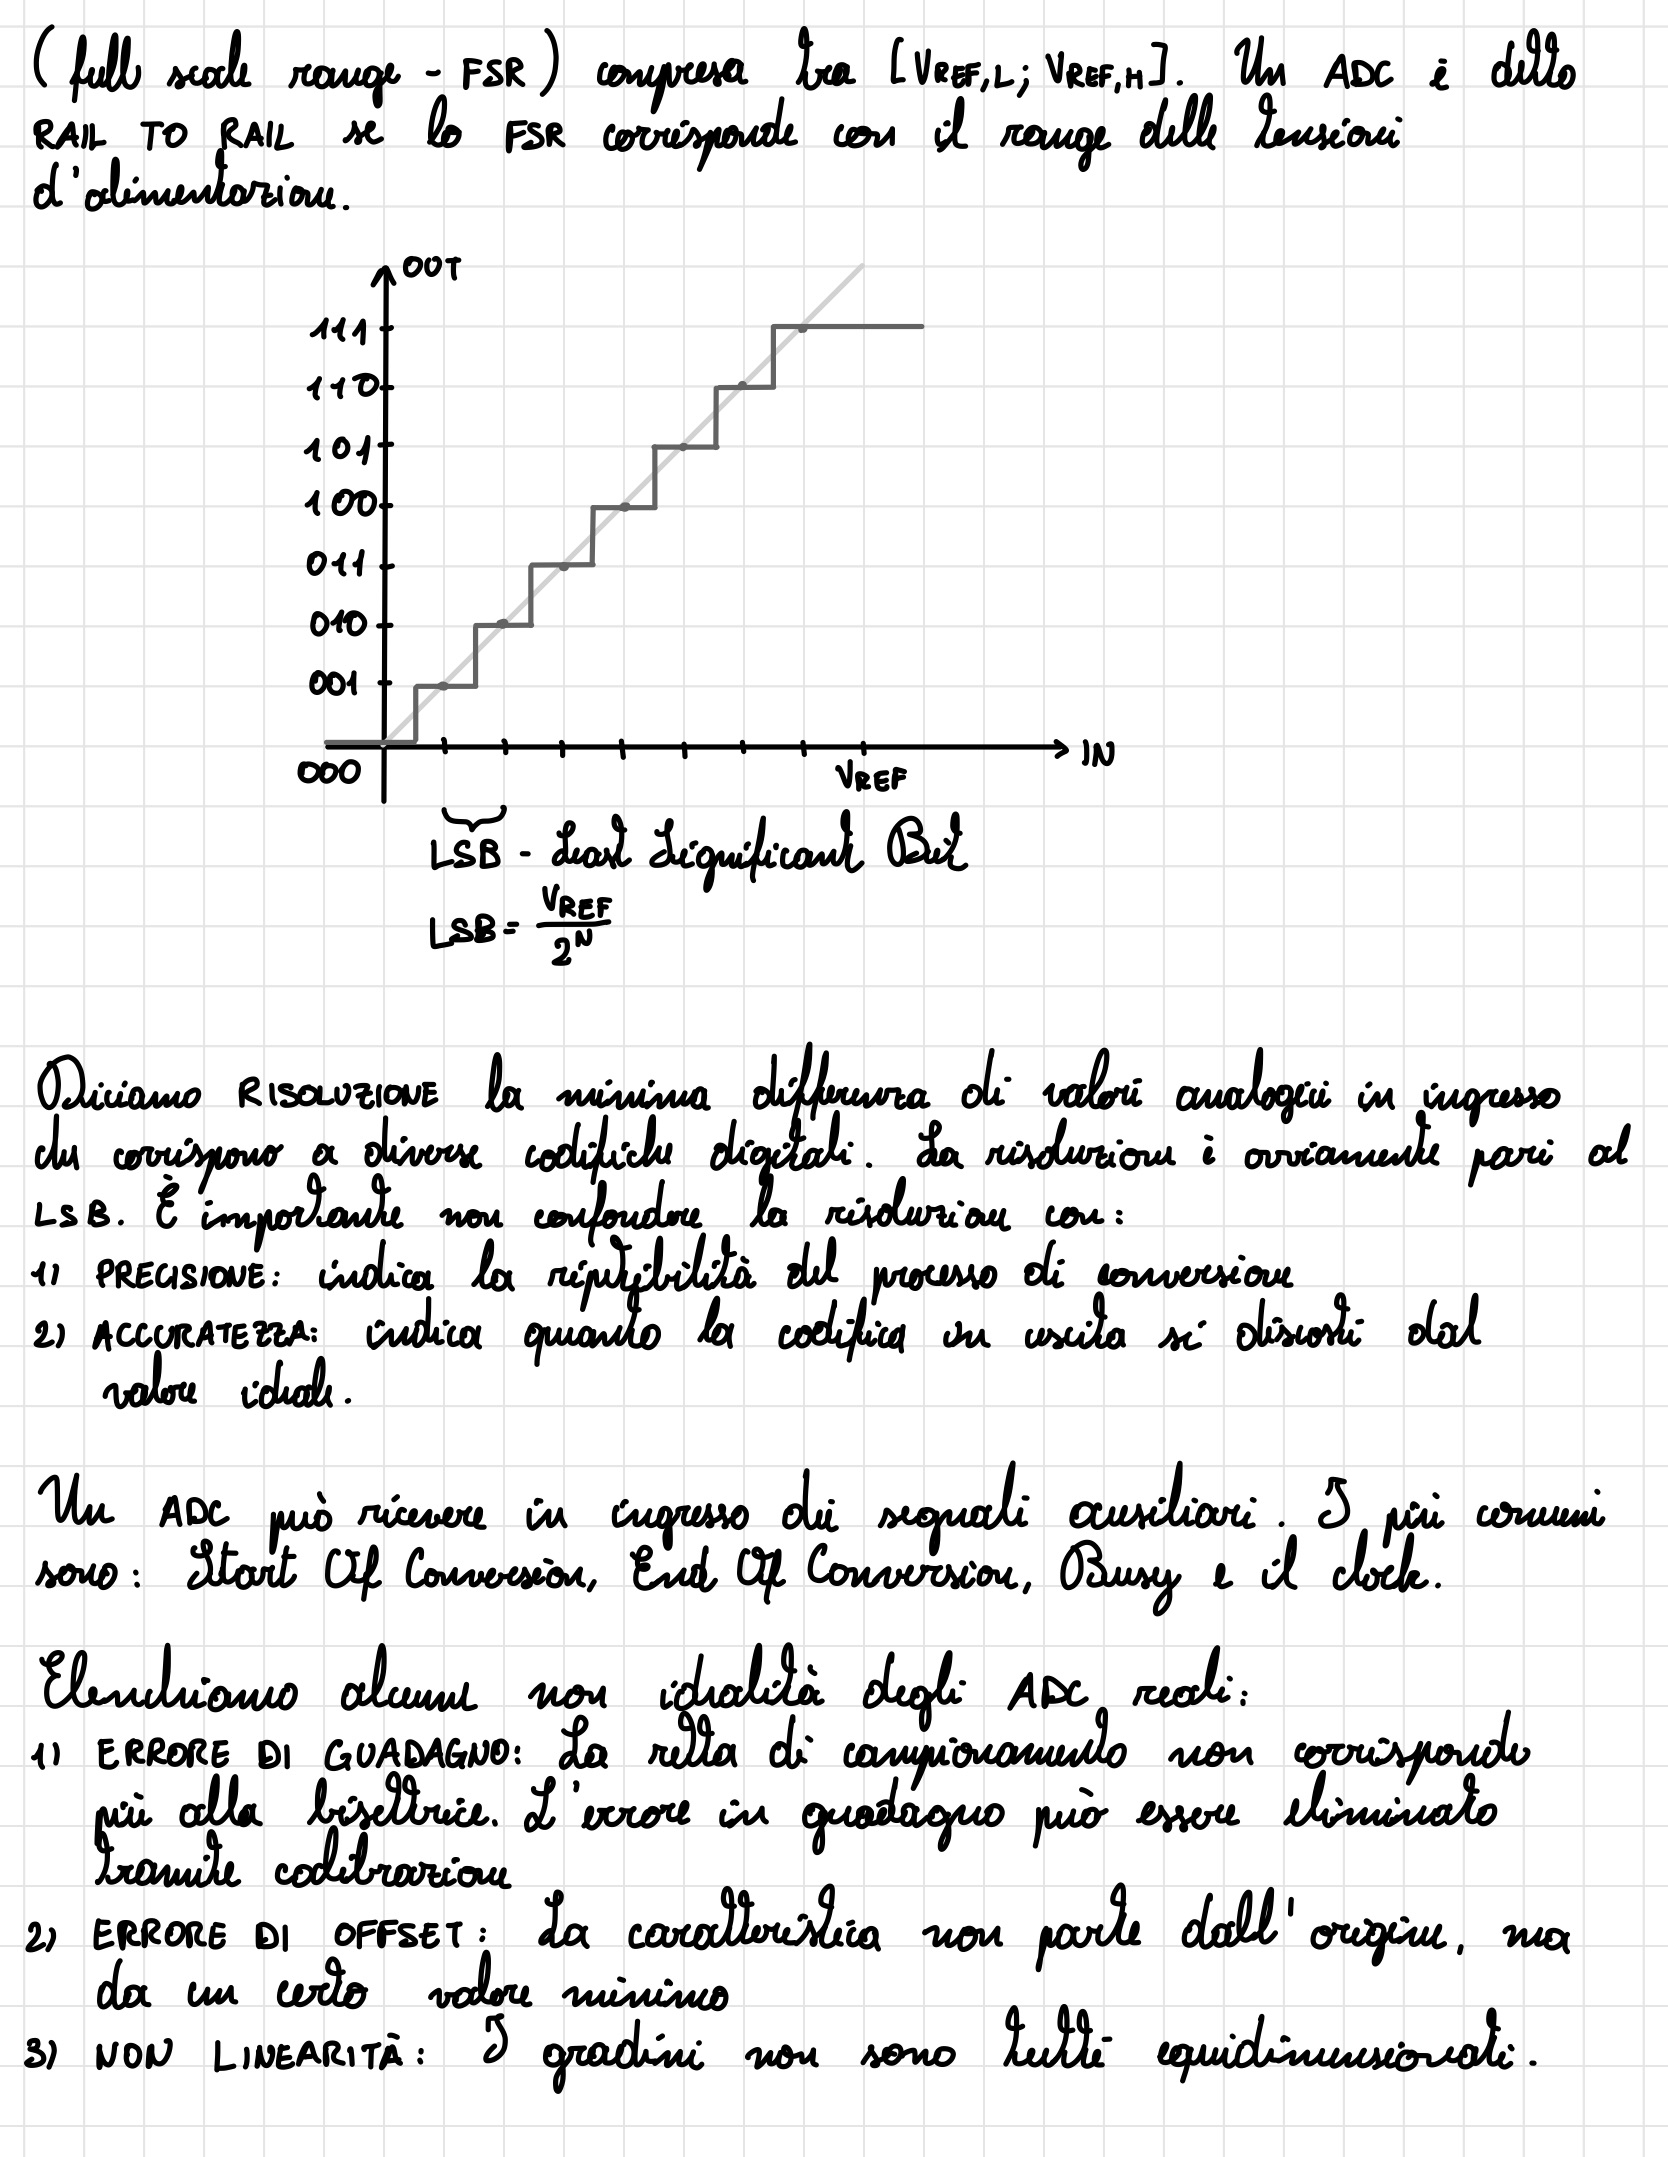 (full scale range - FSR) compresa tra [VREF,L; VREF,H]. Un ADC è detto
RAIL TO RAIL se lo FSR corrisponde con il range delle tensioni
d'alimentazione.
OUT
111
110
101
100
011
010
001
000
VREF
IN
LSB - Least Significant Bit
LSB = VREF / 2^N
Diciamo RISOLUZIONE la minima differenza di valori analogici in ingresso
che corrispono a diverse codifiche digitali. La risoluzione è ovviamente pari al
LSB. È importante non confondere la risoluzione con:
1) PRECISIONE: indica la ripetibilità del processo di conversione
2) ACCURATEZZA: indica quanto la codifica in uscita si discosti dal
valore ideale.
Un ADC può ricevere in ingresso dei segnali ausiliari. I più comuni
sono: Start Of Conversion, End Of Conversion, Busy e il clock.
Elenchiamo alcune non idealità degli ADC reali:
1) ERRORE DI GUADAGNO: La retta di campionamento non corrisponde
più alla bisettrice. L'errore in guadagno può essere eliminato
tramite calibrazione
2) ERRORE DI OFFSET: La caratteristica non parte dall'origine, ma
da un certo valore minimo
3) NON LINEARITÀ: I gradini non sono tutti equidimensionali.